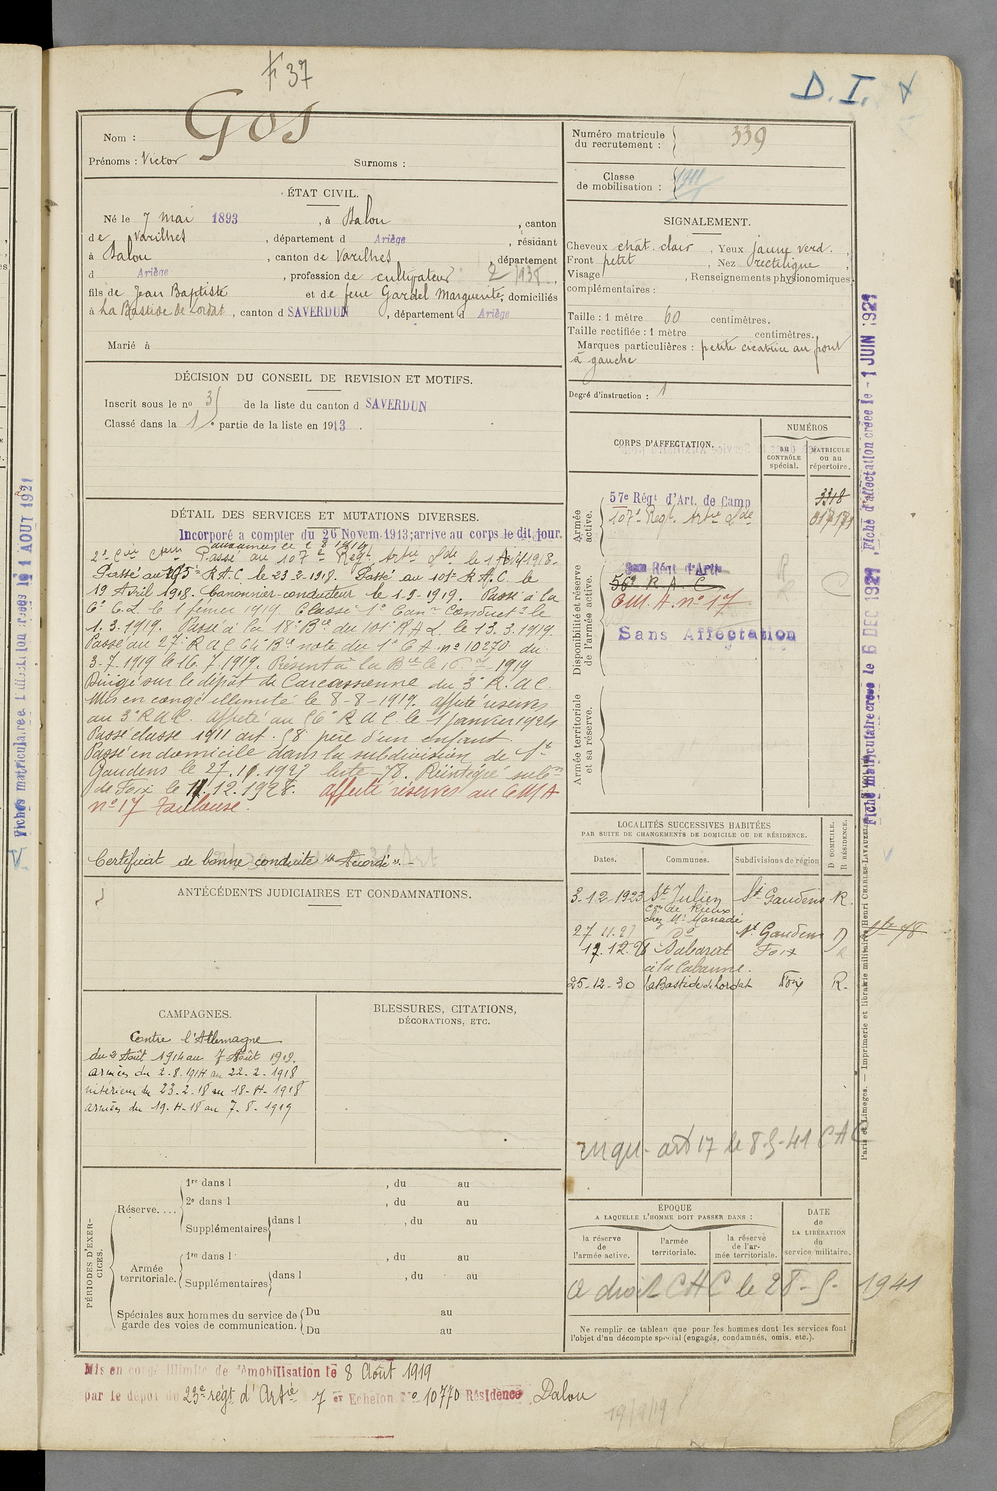 F 37
D. I.
Nom : Gos
Prénoms : Victor Surnoms :
Numéro matricule du recrutement : 339
Classe de mobilisation : 1911
ÉTAT CIVIL.
Né le 7 mai 1893, à Dalou, canton
de Varilhes, département d Ariège, résidant
à Dalou, canton de Varilhes, département
d Ariège, profession de cultivateur
fils de Jean Baptiste et de feue Gardel Marguerite, domiciliés
à La Bastide de Lordat, canton d SAVERDUN, département d Ariège
Marié à
SIGNALEMENT.
Cheveux chât. clair, Yeux jaune verd.
Front petit, Nez rectiligne
Visage, Renseignements physionomiques
complémentaires :
Taille : 1 mètre 60 centimètres.
Taille rectifiée : 1 mètre centimètres.
Marques particulières : petite cicatrice au front
à gauche
Degré d'instruction : 1
DÉCISION DU CONSEIL DE REVISION ET MOTIFS.
Inscrit sous le no 35 de la liste du canton d SAVERDUN
Classé dans la 1re partie de la liste en 1913.
DÉTAIL DES SERVICES ET MUTATIONS DIVERSES.
Incorporé a compter du 26 Novem. 1913; arrive au corps le dit jour.
Passé au 107e Régt Artie Lde le
Passé au R.A.C. le 23.2.1918. Passé au 101e R.A.C. le
19 Avril 1918. Canonnier conducteur le 1.2.1919. Passé à la
le 1 février 1919 Classé 1e Canr Conductr le
1.3.1919. Passé à la 18e Bie du 101e R.A.L. le 13.3.1919
Passé au 27e R.A.C. note du no 10270 du
3-7-1919 le 16.7.1919. Présent à la Bie le 1919
Dirigé sur le dépôt de Carcassonne du 3e R.A.C.
Mis en congé illimité le 8-8-1919. affecté réserves
au 3e R.A.C. affecté au 56e R.A.C. le 1 janvier 1924
Passé classe 1911 art. 58 père d'un enfant
Passé en domicile dans la subdivision de St
Gaudens le 27.11.1927 liste 78. Réintégré subon
de Foix le 12.1928. affecté réserves au C.M.A
no 17 Toulouse.
Certificat de bonne conduite "Accordé".
CORPS D'AFFECTATION.
NUMÉROS
au CONTRÔLE spécial.
MATRICULE ou au répertoire.
Armée active.
57e Régt d'Art. de Camp 3318
107e Régt Artie Lde
Disponibilité et réserve de l'armée active.
Régt d'Artie
56e R A C
C.M.A. no 17
Sans Affectation
Armée territoriale et sa réserve.
ANTÉCÉDENTS JUDICIAIRES ET CONDAMNATIONS.
LOCALITÉS SUCCESSIVES HABITÉES
PAR SUITE DE CHANGEMENTS DE DOMICILE OU DE RÉSIDENCE.
Dates. Communes. Subdivisions de région D DOMICILE. R RÉSIDENCE.
3-12-1923 St Julien St Gaudens R.
Con de Rieux
chez Mr Manadé
27 11.27 do St Gaudens D
12.12.28 Dabarat Foix
à la Cabanne.
25-12-30 La Bastide de Lordat Foix R.
CAMPAGNES.
Contre l'Allemagne
du 2 Août 1914 au 7 Août 1919.
armées du 2-8.1914 au 22-2-1918
intérieur du 23-2-18 au 18-4-1918
armées du 19-4-18 au 7-8-1919
BLESSURES, CITATIONS,
DÉCORATIONS, ETC.
art 17 le 8-5-41 CAC
PÉRIODES D'EXERCICES.
Réserve....
1re dans l , du au
2e dans l , du au
Supplémentaires dans l , du au
Armée territoriale.
1re dans l , du au
Supplémentaires dans l , du au
Spéciales aux hommes du service de garde des voies de communication.
Du au
Du au
ÉPOQUE
A LAQUELLE L'HOMME DOIT PASSER DANS :
la réserve de l'armée active.
l'armée territoriale.
la réserve de l'armée territoriale.
DATE de LA LIBÉRATION du service militaire.
a droit CAC le 28-5-1941
Ne remplir ce tableau que pour les hommes dont les services font
l'objet d'un décompte spécial (engagés, condamnés, omis, etc.).
Mis en congé illimité de démobilisation le 8 Août 1919
par le dépôt du 23e régt d'Artie 7e Echelon No 10770 Résidence Dalou
19/9/19
Fiche matriculaire créée le 6 DEC 1921, Fiche d'affectation créée le - 1 JUIN 1921
Paris et Limoges. — Imprimerie et librairie militaires Henri CHARLES-LAVAUZELLE